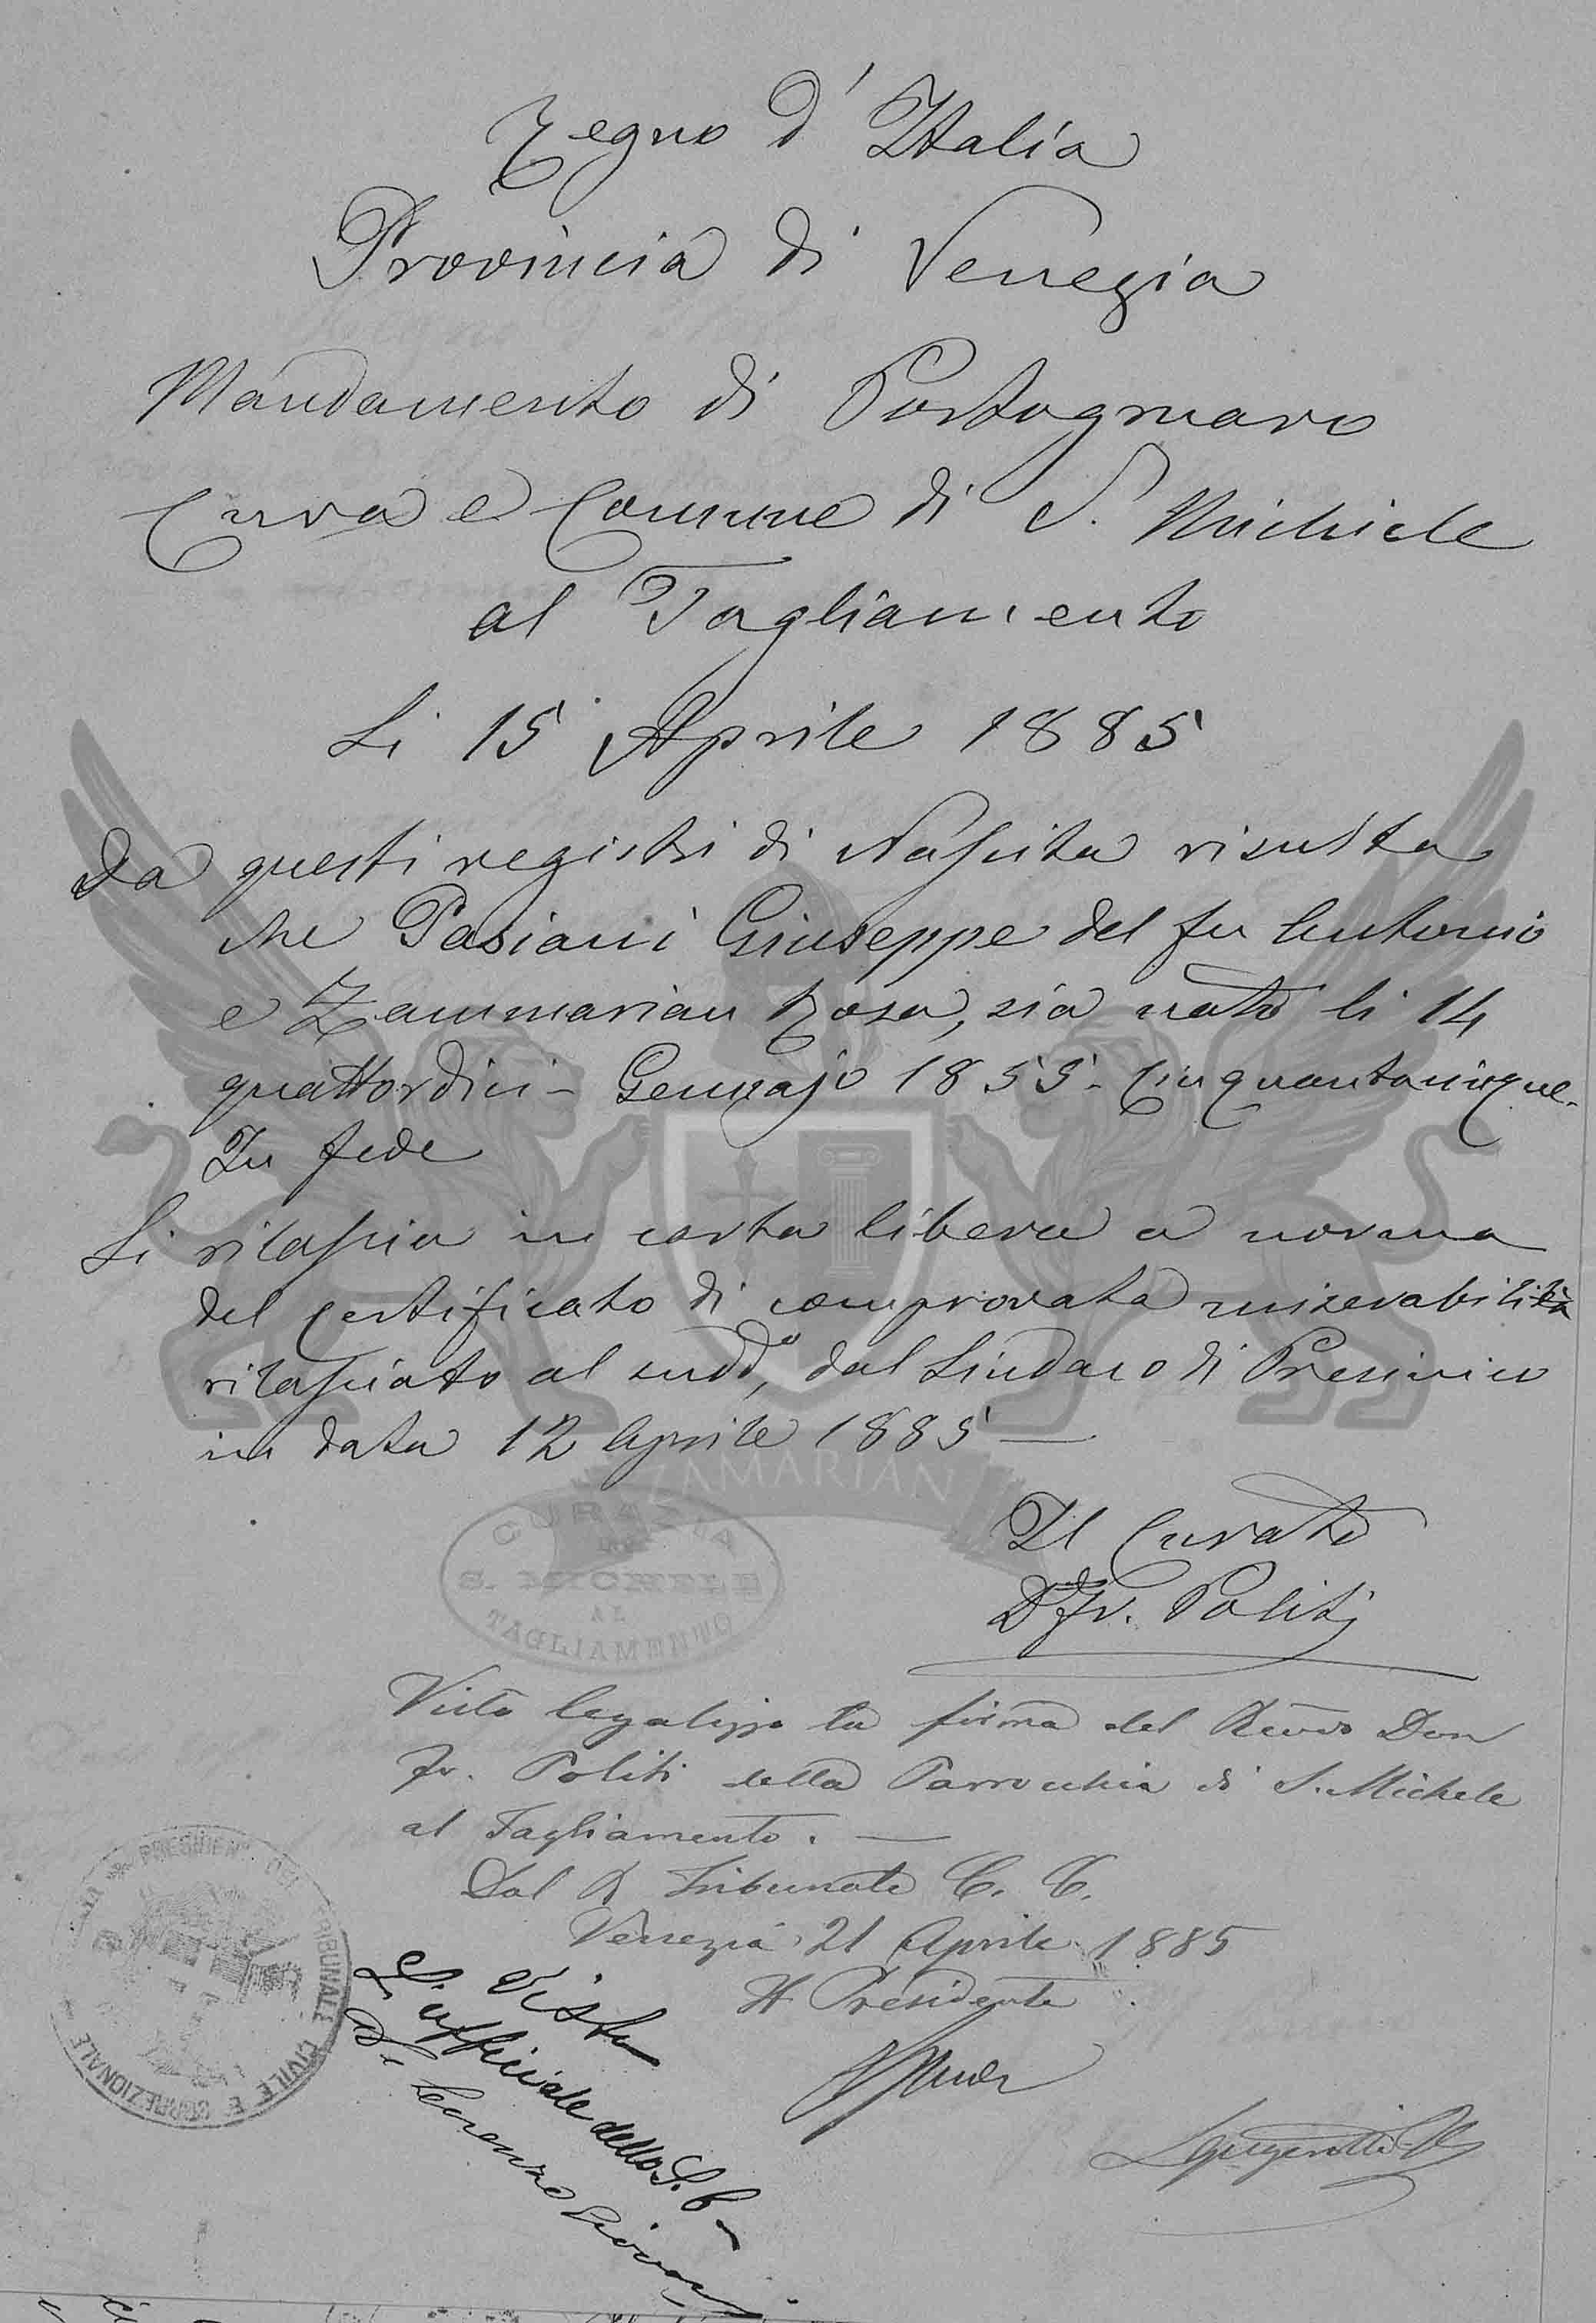 Regno d'Italia
Provincia di Venezia
Mandamento di Portogruaro
Cura e Comune di S. Michiele
al Tagliamento
Li 15 Aprile 1885
Da questi registri di Nascita risulta
che Pasiani Giuseppe del fu Antonio
e Zammarian Rosa, sia nato li 14
quattordici - Gennajo 1855 - Cinquantacinque.
In fede
Si rilascia in carta libera a norma
del certificato di comprovata miserabilità
rilasciato al sudd.o, dal Sindaco di Precinico
in data 12 Aprile 1885 —
ZAMARIAN
CURAZIA
S. MICHELE
AL
TAGLIAMENTO
Il Curato
D. Fr. Politi
Visto legalizzo la firma del Revdo Don
Fr. Politi della Parrocchia di S. Michele
al Tagliamento. —
Dal R Tribunale C. C.
Venezia 21 Aprile 1885
Il Presidente
PRESIDENTE DEL TRIBUNALE CIVILE E CORREZIONALE
Visto
L'ufficiale dello S. C.
Di Lorenzo